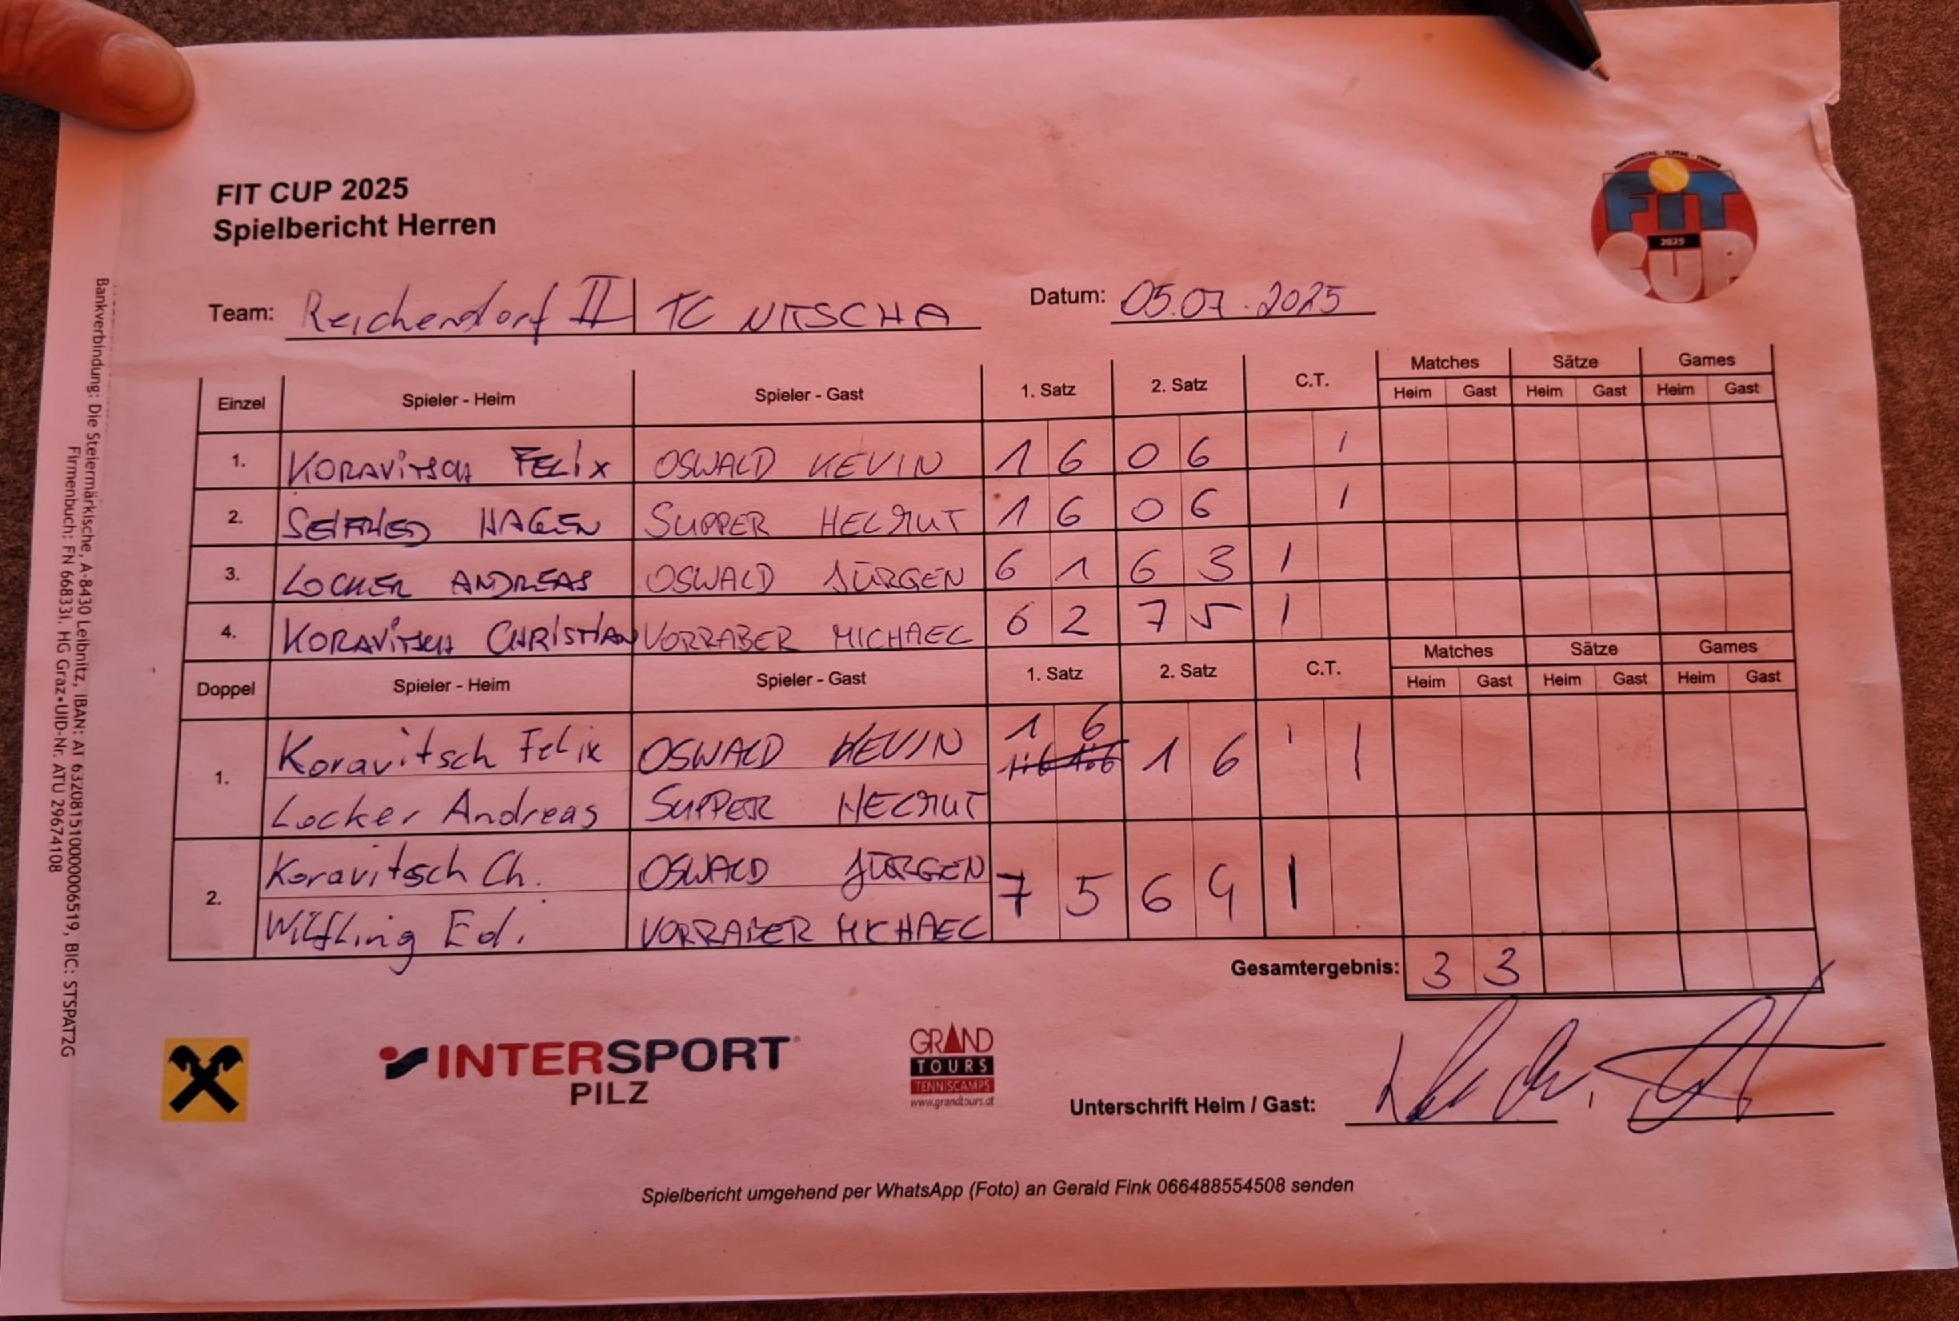 FIT CUP 2025
Spielbericht Herren
FIT
2025
CUP
Team: Reichendorf II | TC NITSCHA Datum: 05.07.2025
Einzel Spieler - Heim Spieler - Gast 1. Satz 2. Satz C.T. Matches Sätze Games
Heim Gast Heim Gast Heim Gast
1. KORAVITSCH FELIX OSWALD KEVIN 1 6 0 6 1
2. SEIFRIED HAGEN SUPPER HELMUT 1 6 0 6 1
3. LOCKER ANDREAS OSWALD JÜRGEN 6 1 6 3 1
4. KORAVITSCH CHRISTIAN VORRABER MICHAEL 6 2 7 5 1
Doppel Spieler - Heim Spieler - Gast 1. Satz 2. Satz C.T. Matches Sätze Games
Heim Gast Heim Gast Heim Gast
1. Koravitsch Felix OSWALD KEVIN 1 6 1 6 1
Locker Andreas SUPPER HELMUT
2. Koravitsch Ch. OSWALD JÜRGEN 7 5 6 4 1
Wilfling Ed. VORRABER MICHAEL
Gesamtergebnis: 3 3
INTERSPORT
PILZ
GRAND
TOURS
TENNISCAMPS
www.grandtours.at
Unterschrift Heim / Gast:
Spielbericht umgehend per WhatsApp (Foto) an Gerald Fink 066488554508 senden
Bankverbindung: Die Steiermärkische, A-8430 Leibnitz, IBAN: AT 632081510000006519, BIC: STSPAT2G
Firmenbuch: FN 66833i, HG Graz•UID-Nr. ATU 29674108